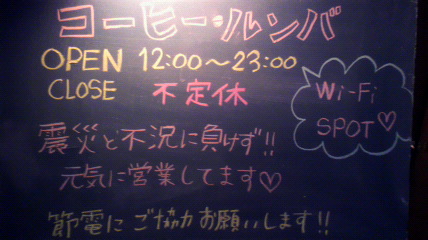 コーヒー・ルンバ
OPEN 12:00〜23:00
CLOSE 不定休
Wi-Fi
SPOT♡
震災と不況に負けず!!
元気に営業してます♡
節電にご協力お願いします!!